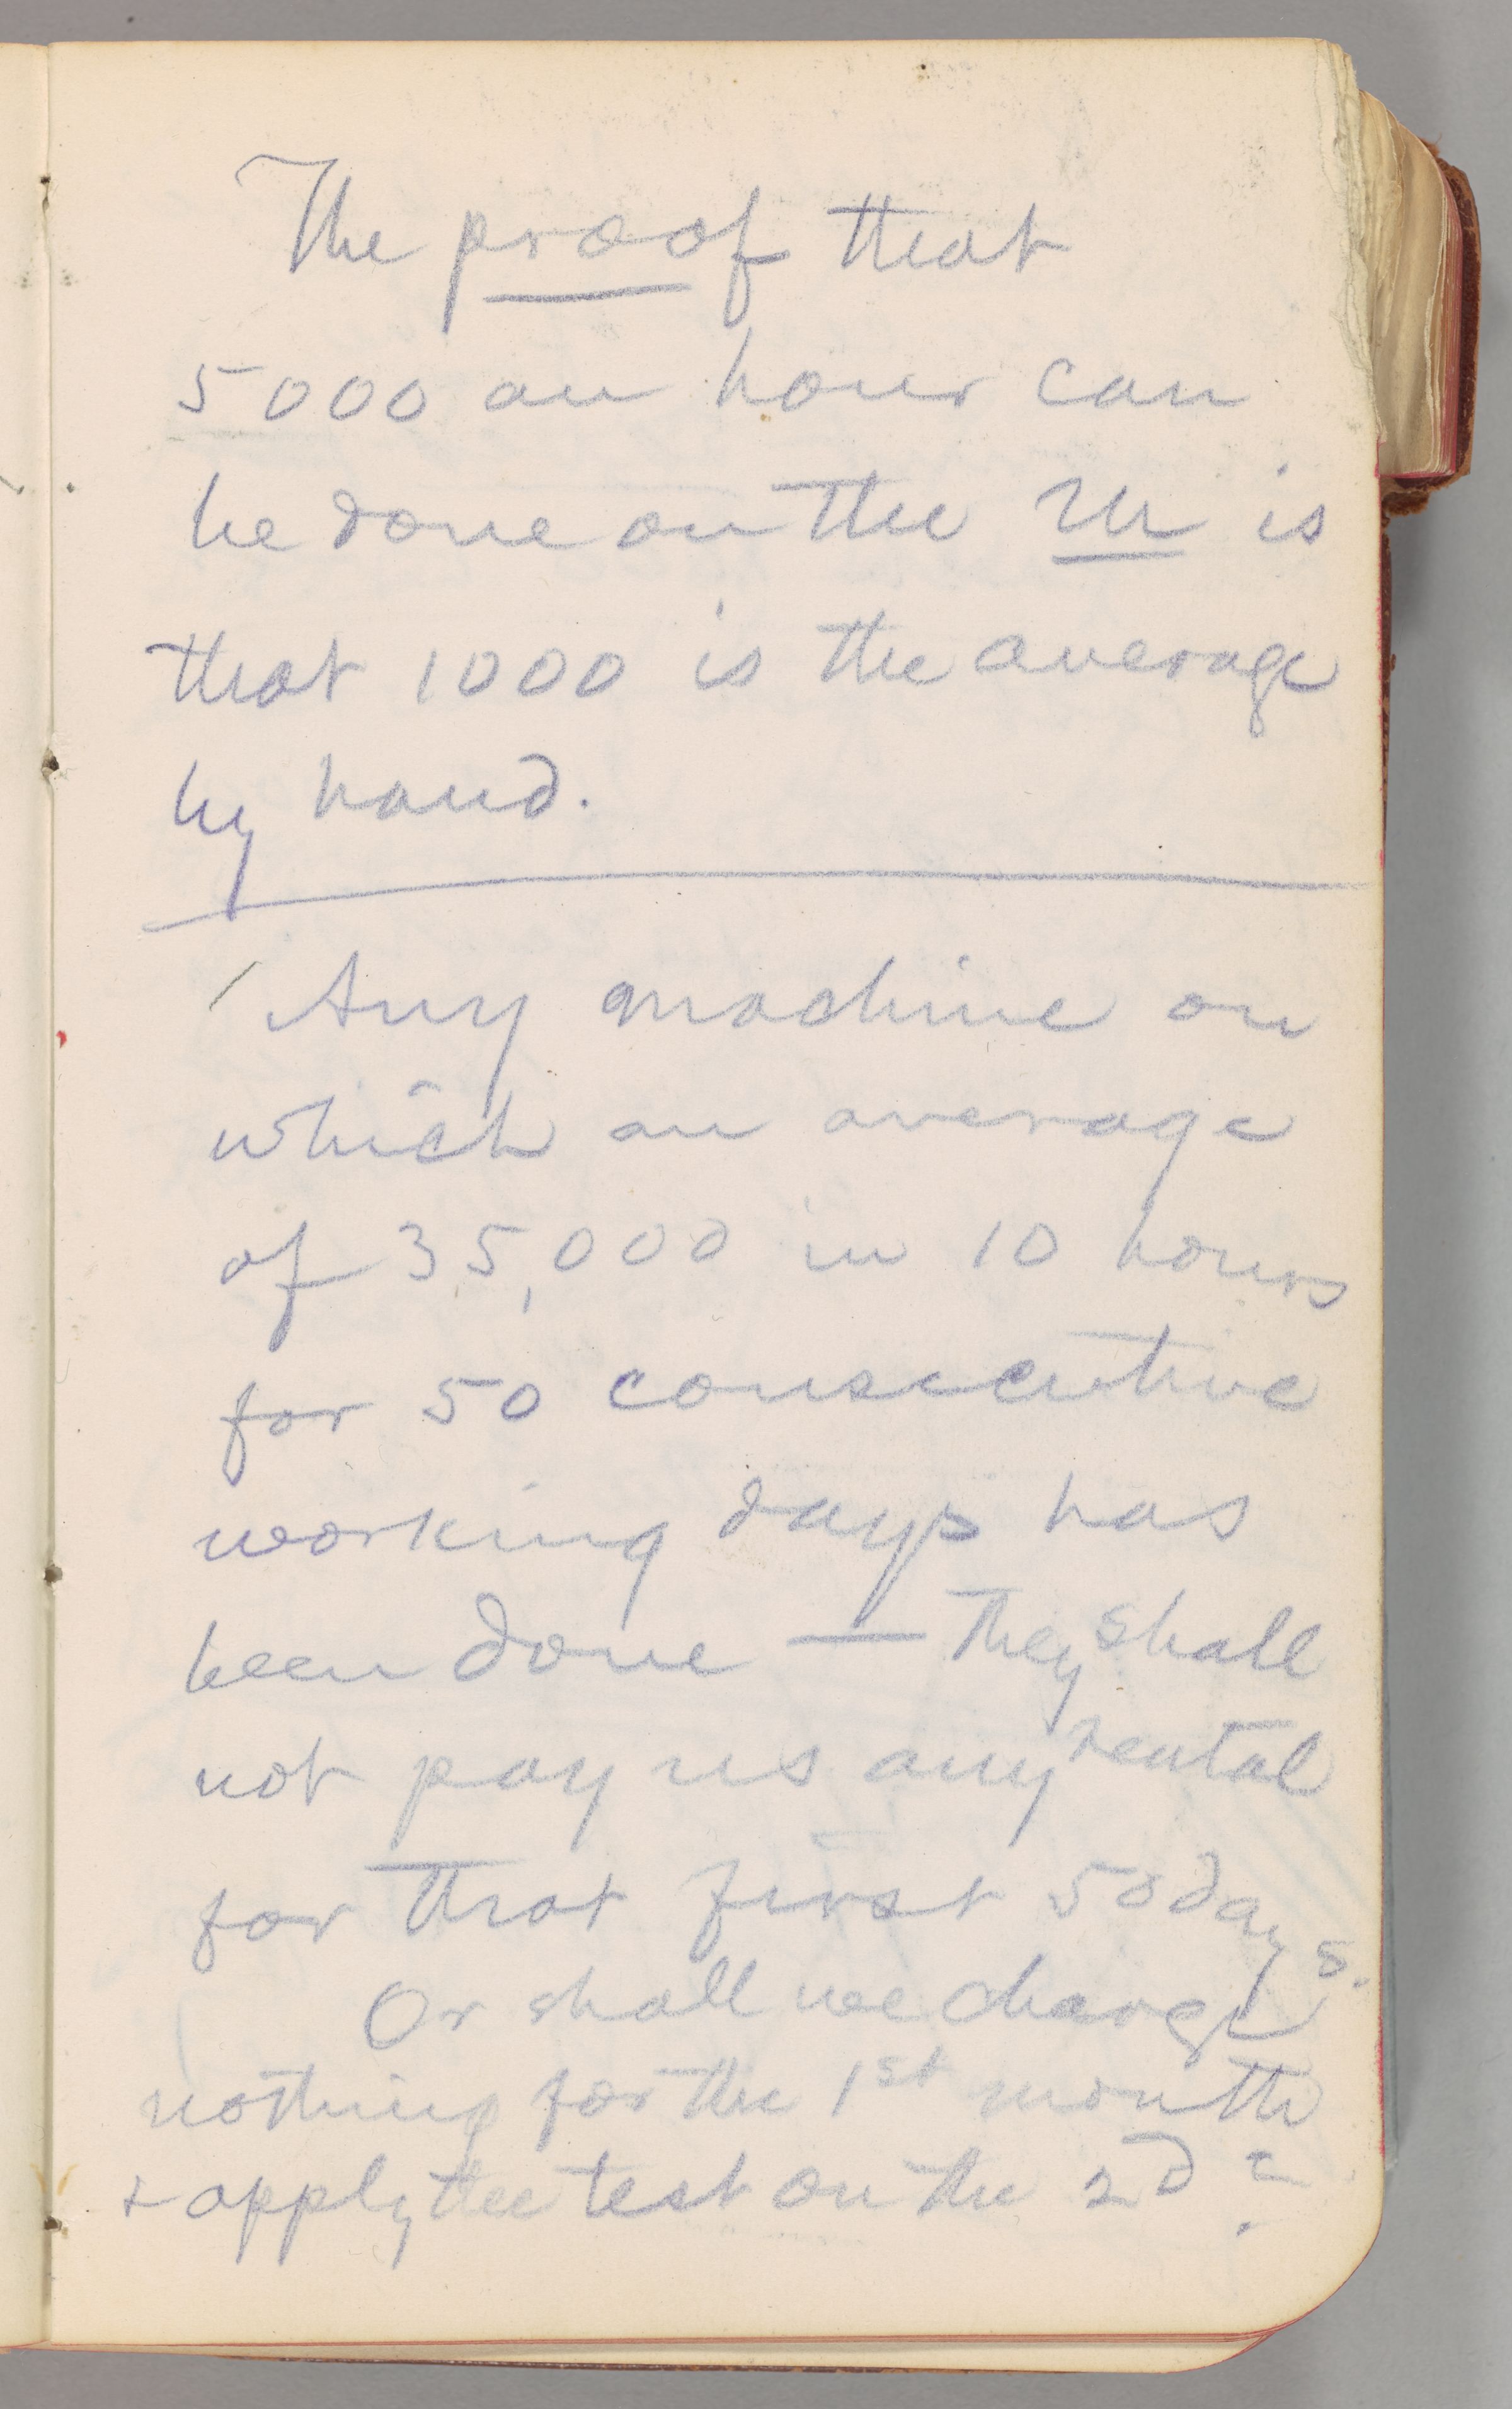 The proof that
5000 an hour can
be done on the M is
that 1000 is the average
by hand.
Any machine on
which an average
of 35,000 in 10 hours
for 50 consecutive
working days has
been done — they shall
not pay us any rental
for that first 50 days.
Or shall we charge
nothing for the 1st month
& apply the test on the 2d?